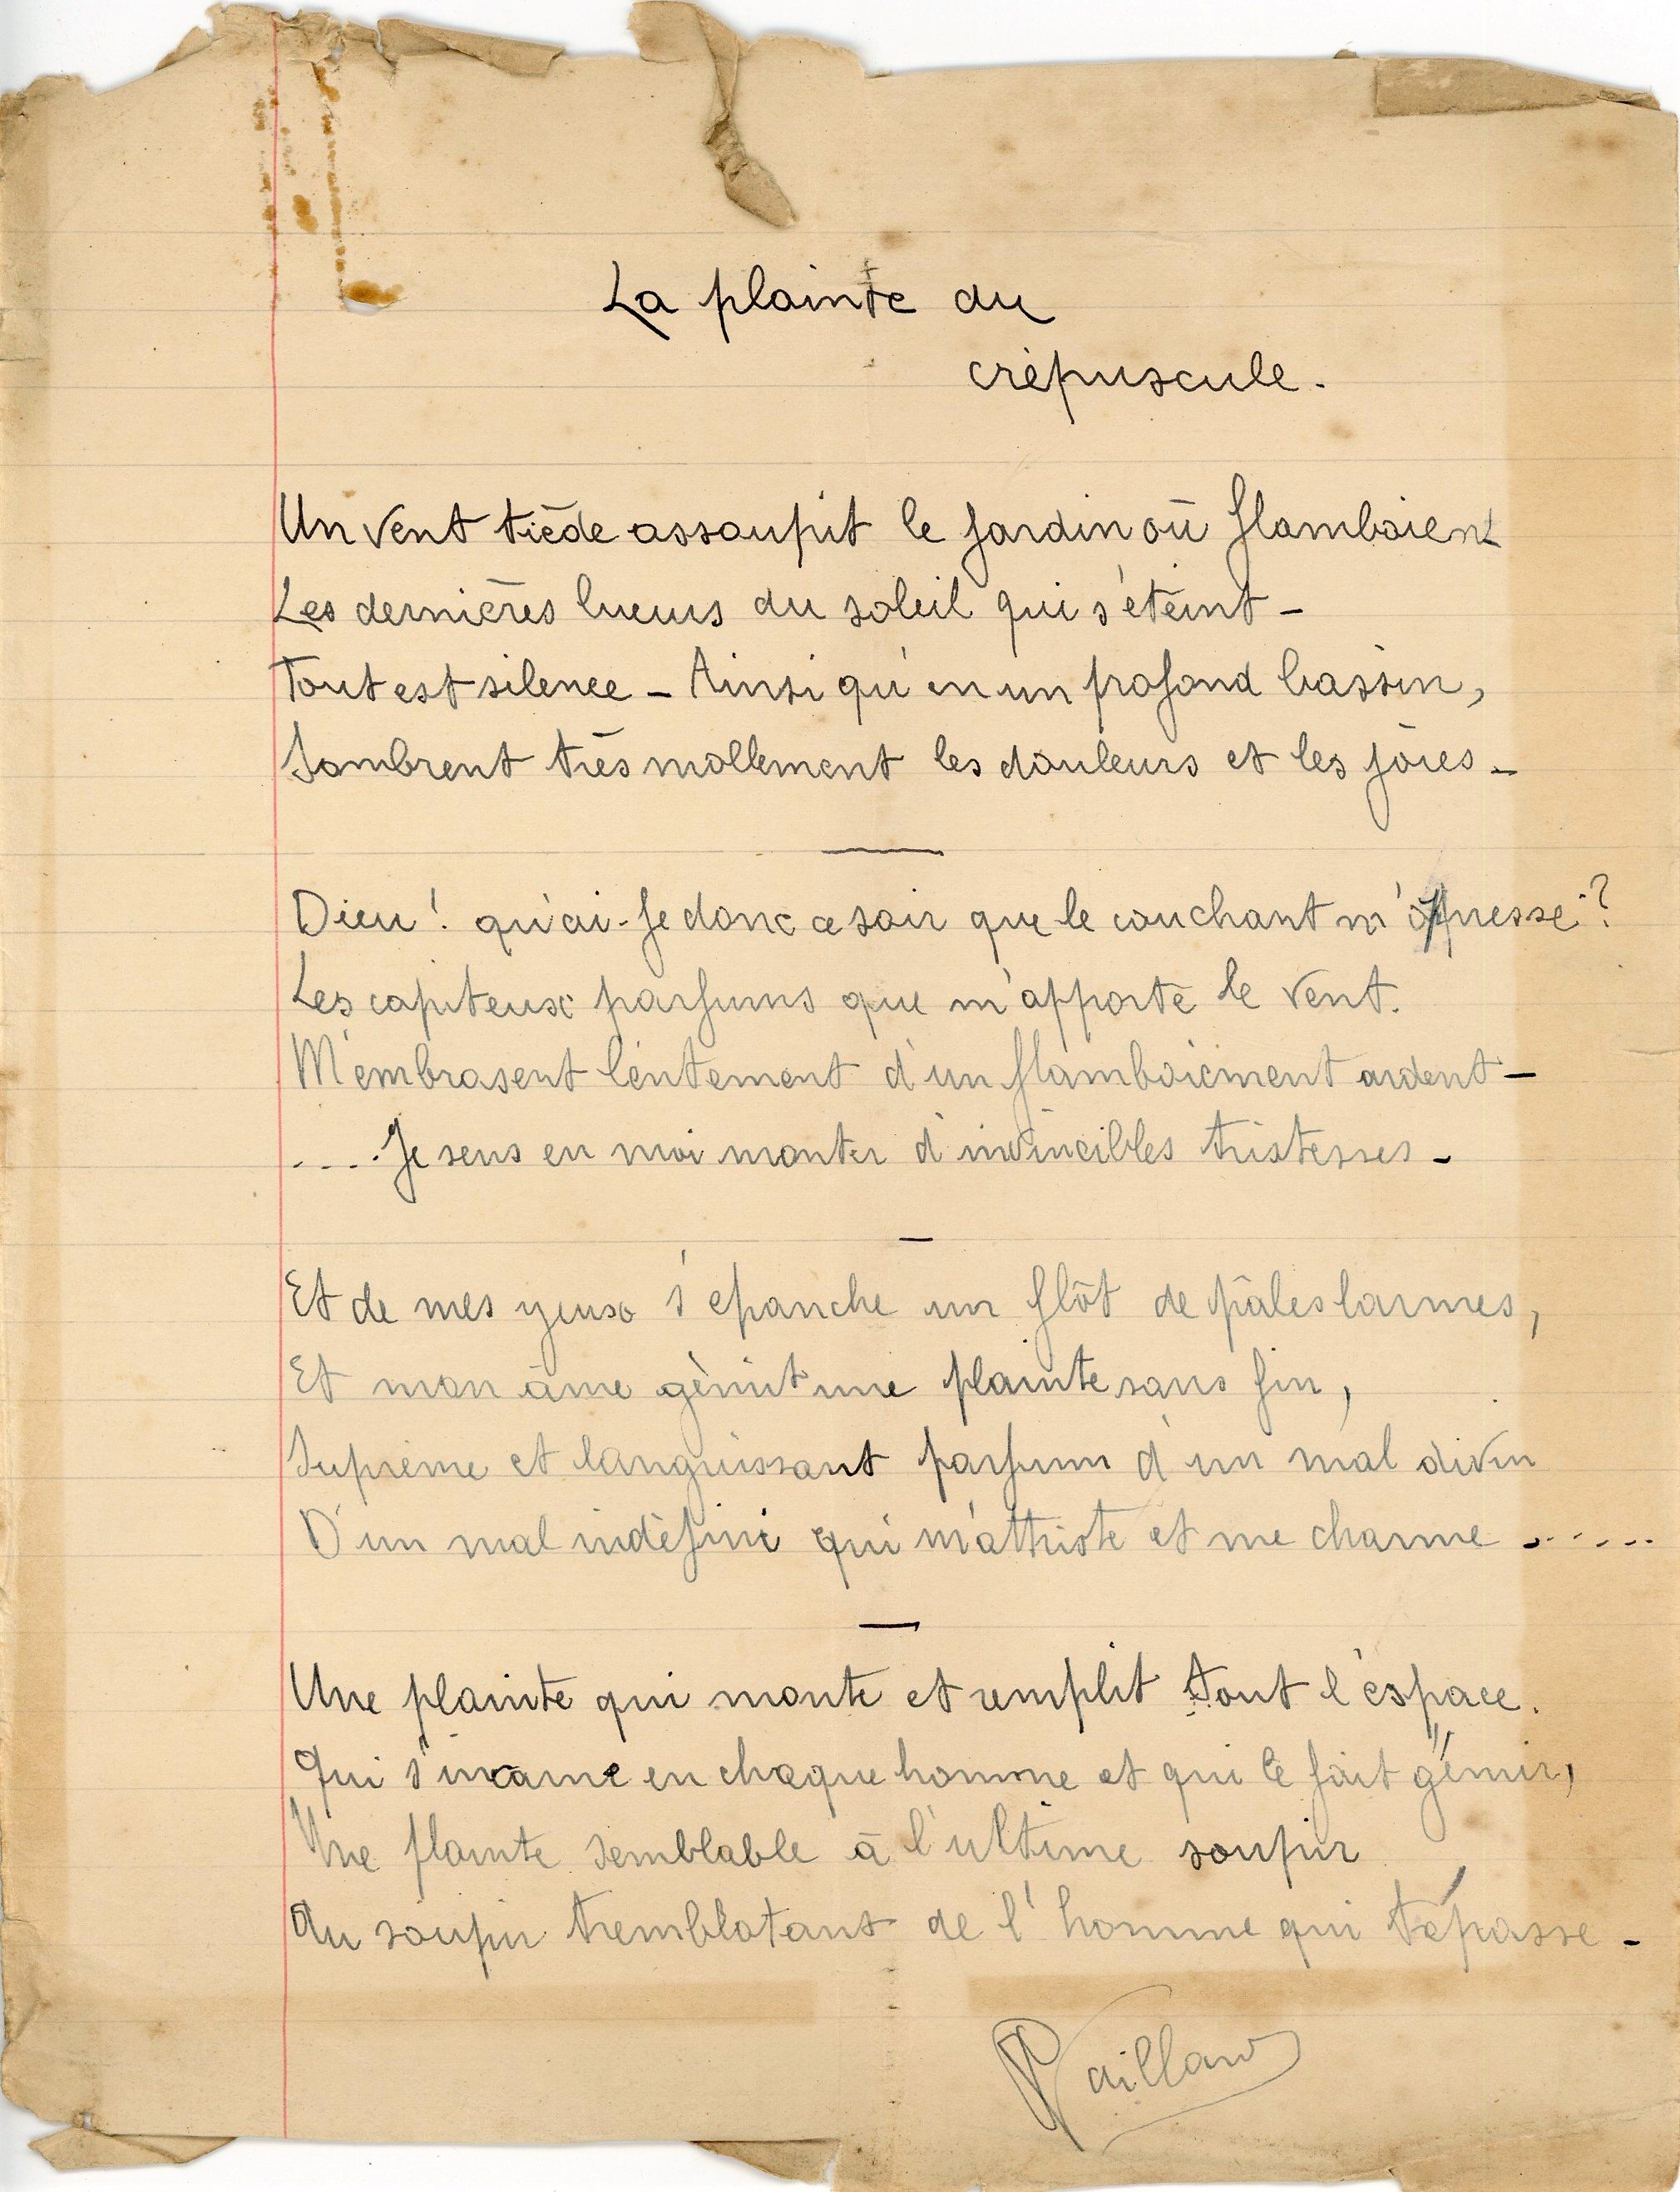 La plainte du
crépuscule.
Un vent tiède assoupit le jardin où flamboient
Les dernières lueurs du soleil qui s'éteint -
Tout est silence - Ainsi qu'en un profond bassin,
Sombrent très mollement les douleurs et les joies -
Dieu ! qu'ai-je donc ce soir que le couchant m'oppresse ?
Les capiteux parfums que m'apporte le vent.
M'embrasent lentement d'un flamboiement ardent -
.... Je sens en moi monter d'invincibles tristesses -
Et de mes yeux s'épanche un flôt de pâles larmes,
Et mon âme gémit une plainte sans fin,
Suprème et languissant parfum d'un mal divin
D'un mal indéfini qui m'attriste et me charme .....
Une plainte qui monte et remplit tout l'espace.
Qui s'incarne en chaque homme et qui le fait gémir,
Une plainte semblable à l'ultime soupir
Au soupir tremblotant de l'homme qui trépasse -